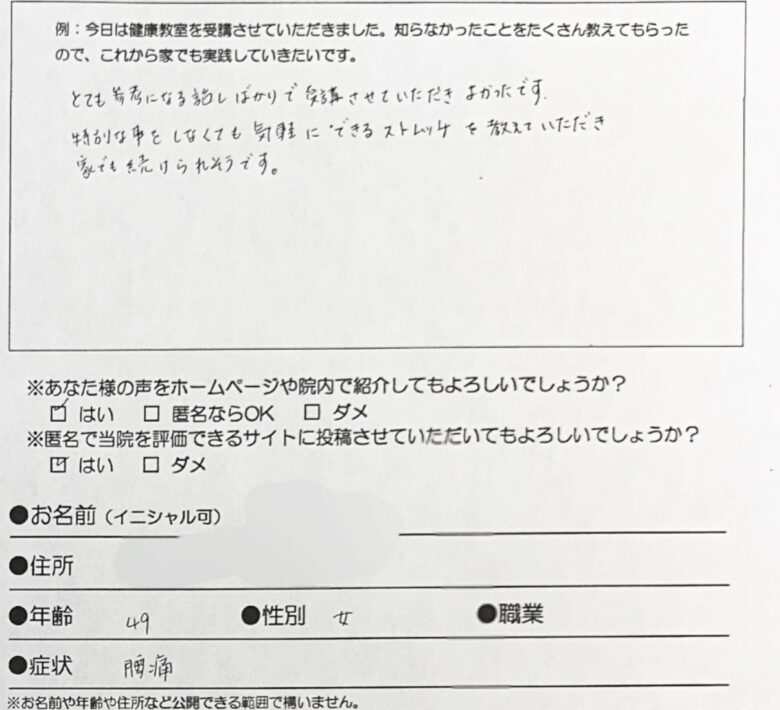 例：今日は健康教室を受講させていただきました。知らなかったことをたくさん教えてもらった
ので、これから家でも実践していきたいです。
とても参考になる話しばかりで受講させていただきよかったです。
特別な事をしなくても気軽にできるストレッチを教えていただき
家でも続けられそうです。
※あなた様の声をホームページや院内で紹介してもよろしいでしょうか？
☑ はい □ 匿名ならOK □ ダメ
※匿名で当院を評価できるサイトに投稿させていただいてもよろしいでしょうか？
☑ はい □ ダメ
●お名前（イニシャル可）
●住所
●年齢 49 ●性別 女 ●職業
●症状 腰痛
※お名前や年齢や住所など公開できる範囲で構いません。